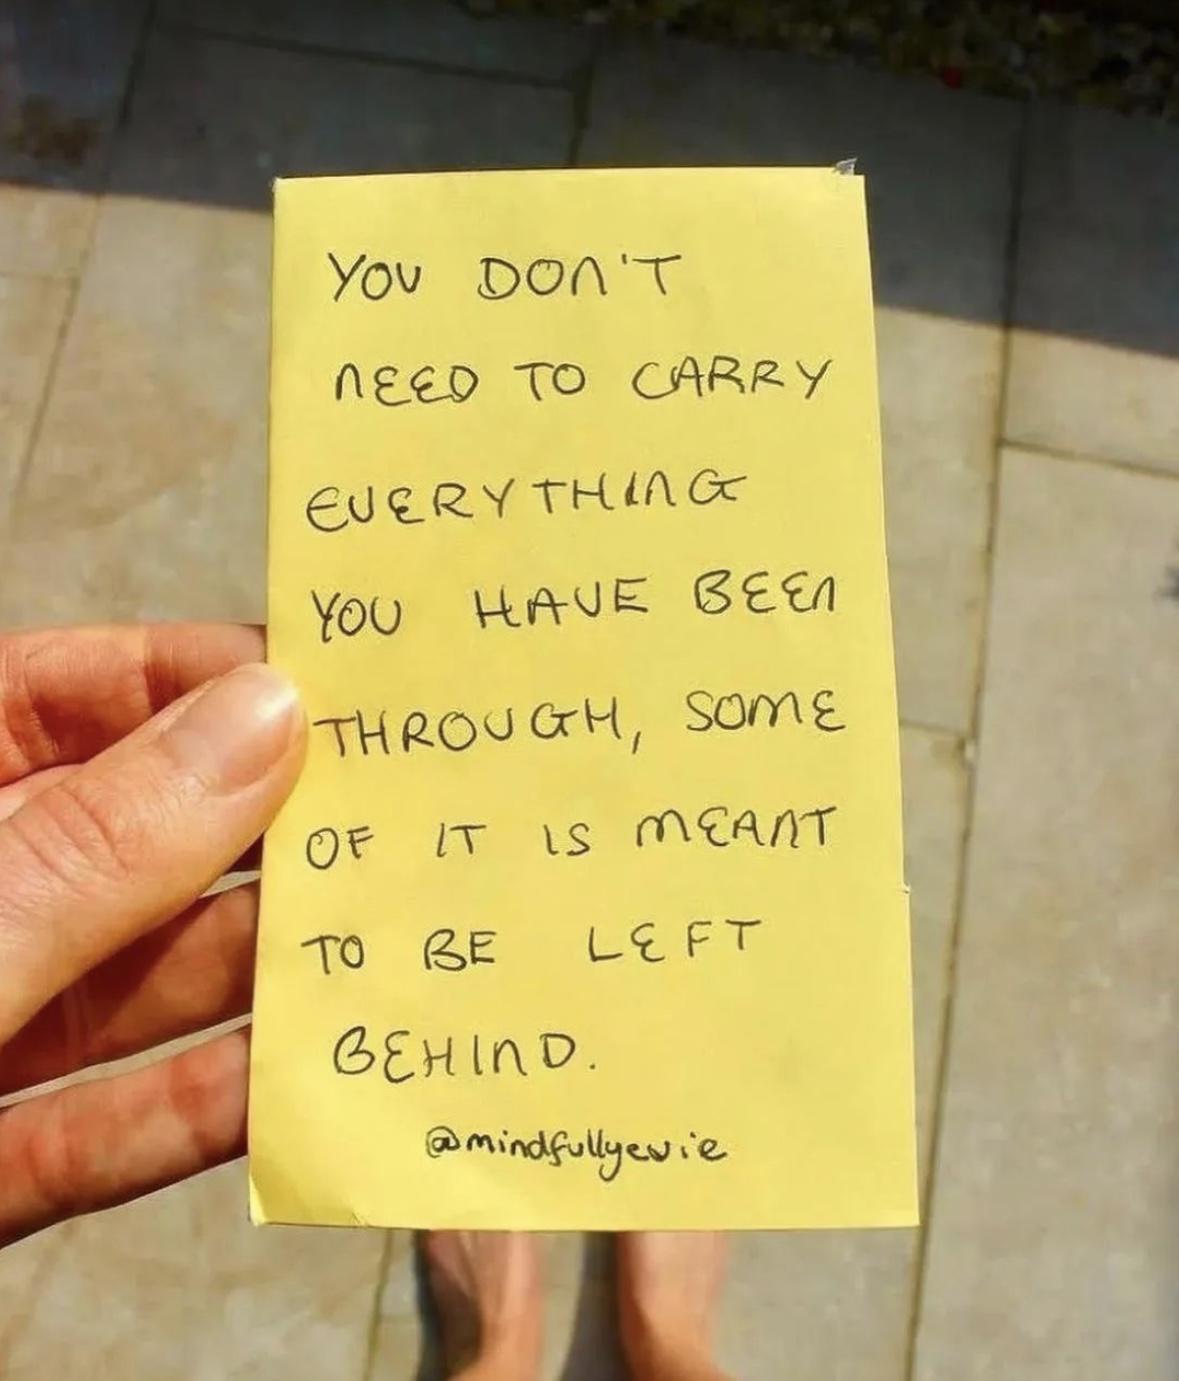 YOU DON'T
NEED TO CARRY
EVERYTHING
YOU HAVE BEEN
THROUGH, SOME
OF IT IS MEANT
TO BE LEFT
BEHIND.
@mindfullyevie